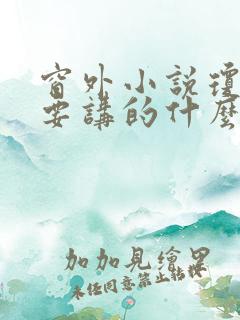 窗外小說瓊
要講的什麼
加加見繪里
未任同意禁止轉載